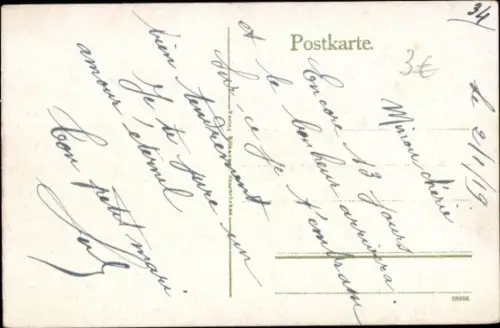 34
Postkarte.
3€
le 2/1/19
Minou chérie
Encore 13 jours
et le bonheur arrivera
je t'embrasse
bien tendrement
Je te jure un
amour éternel
Ton petit mari